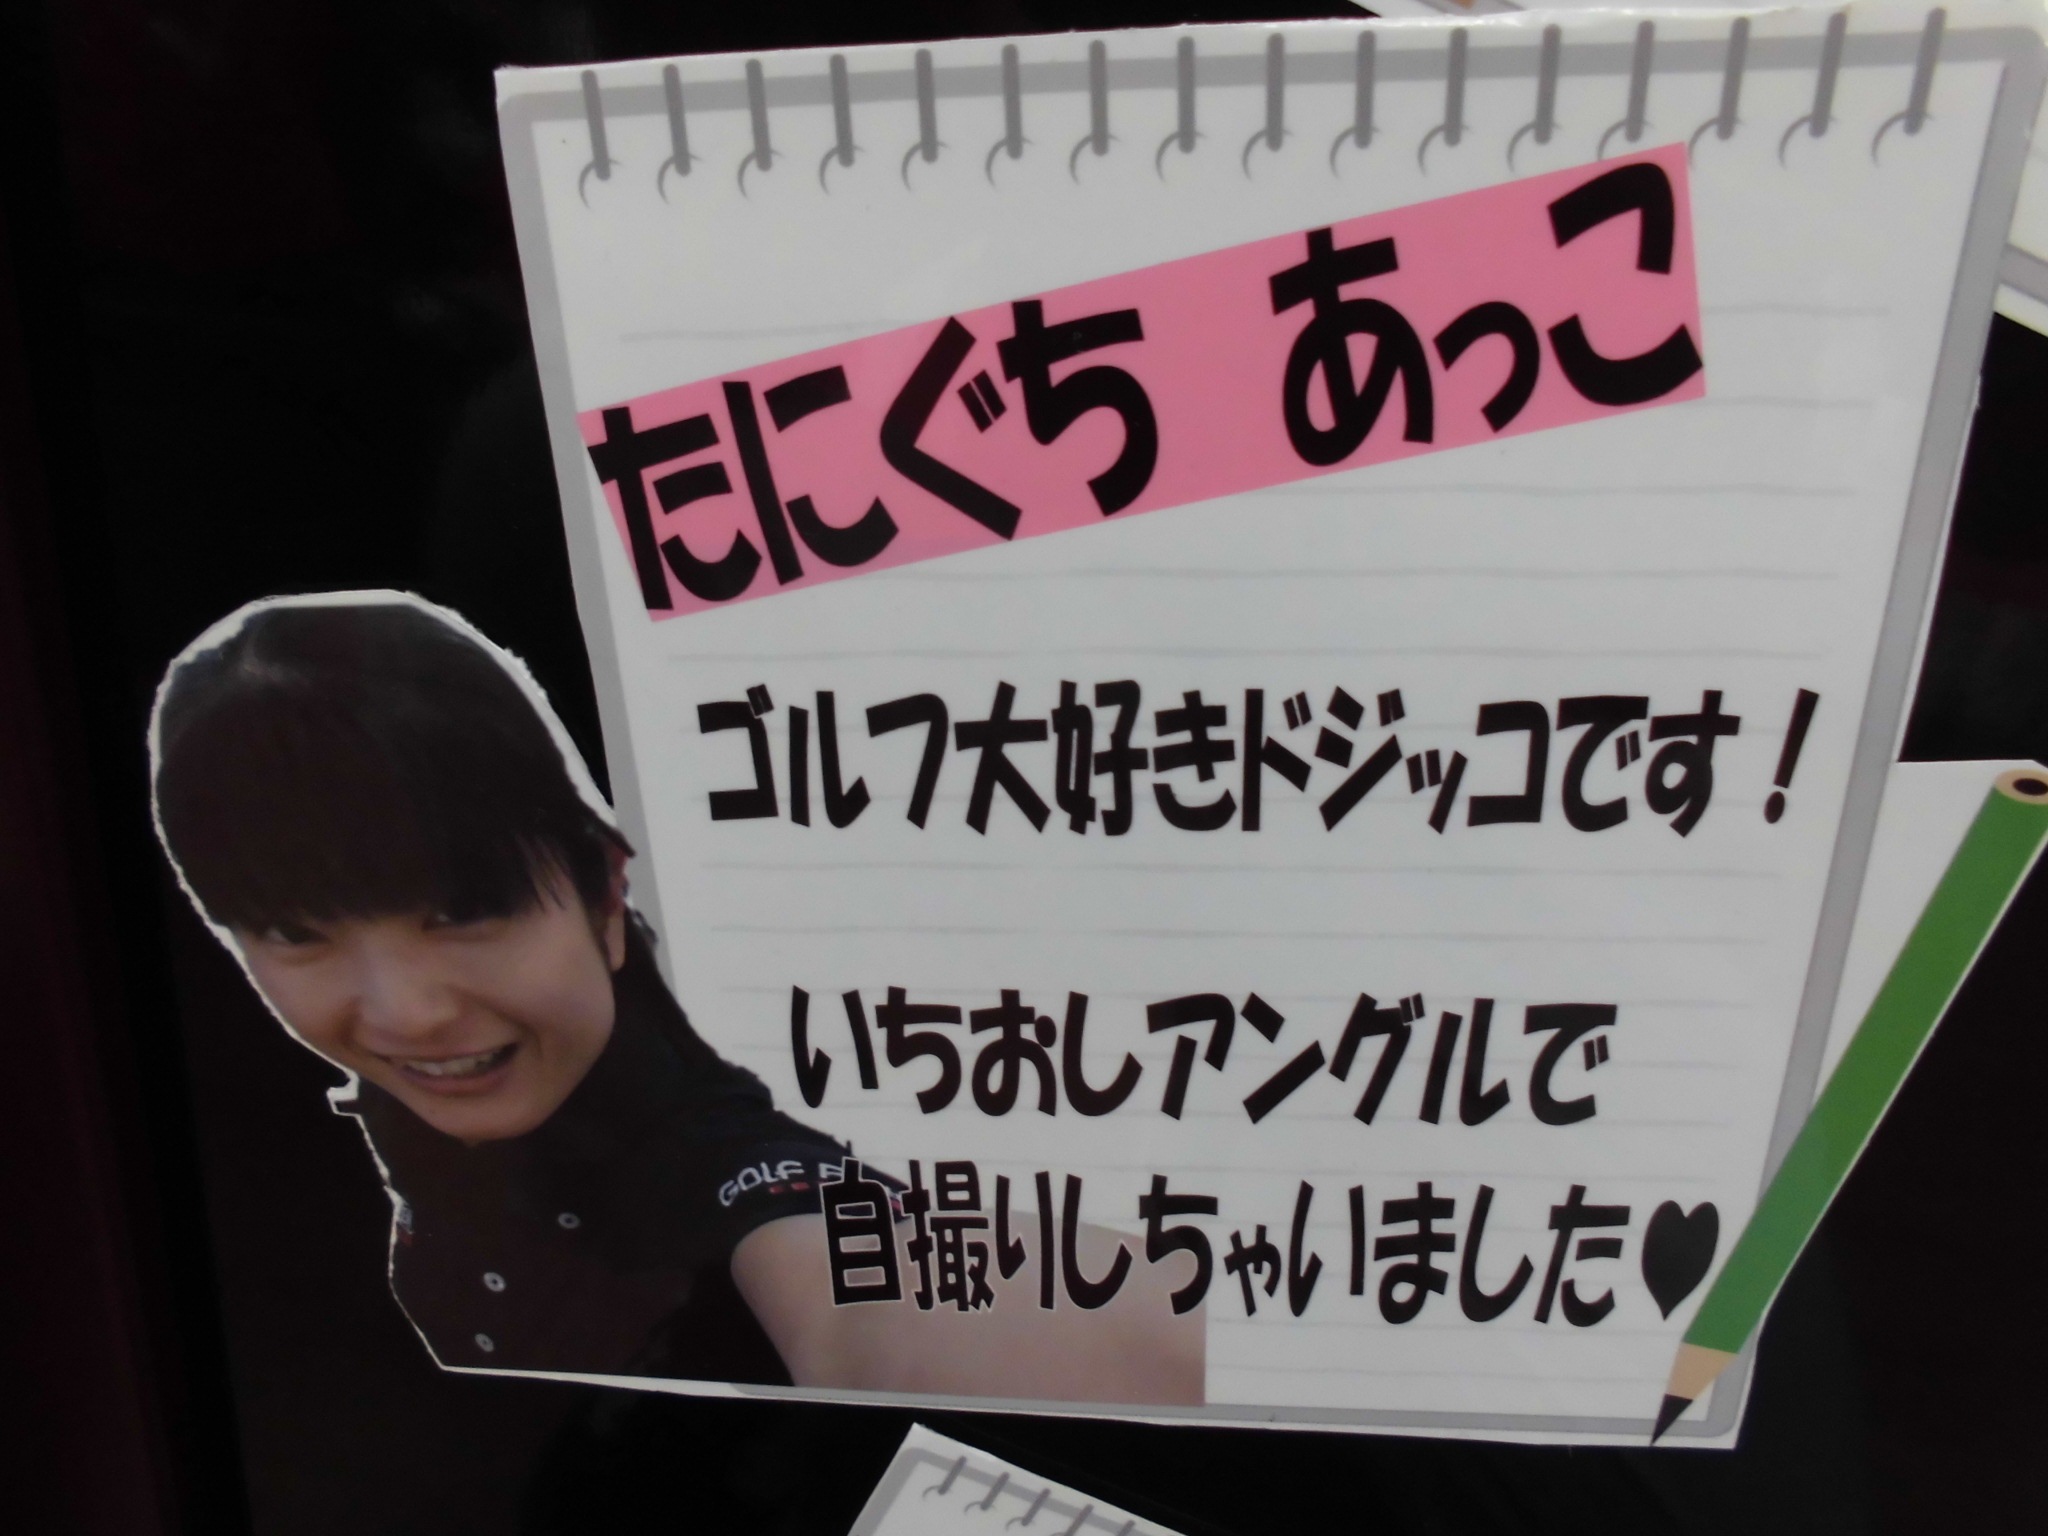 たにぐち あっこ
ゴルフ大好きドジッコです!
いちおしアングルで
GOLF
自撮りしちゃいました♥